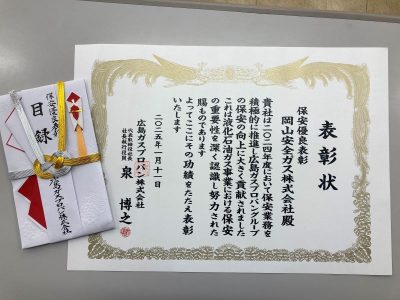 表彰状
保安優良表彰
岡山安全ガス株式会社殿
貴社は二〇二四年度において保安業務を
積極的に推進し広島ガスプロパングループ
の保安の向上に大きく貢献されました
これは液化石油ガス事業における保安
の重要性を深く認識し努力された
賜ものであります
よってここにその功績をたたえ表彰
いたします
二〇二五年一月十一日
広島ガスプロパン株式会社
代表取締役社長
社長執行役員
泉 博之
保安優良表彰
目録
広島ガスプロパン株式会社